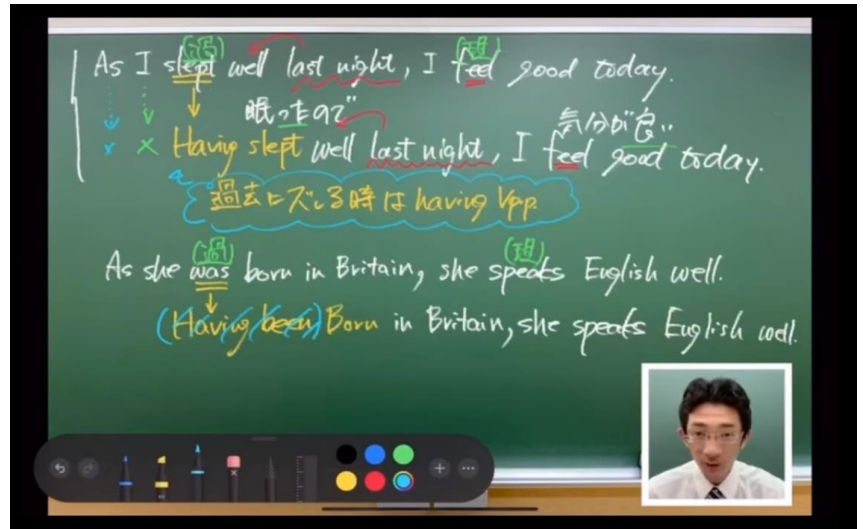 (過) (現)
As I slept well last night, I feel good today.
眠ったので 気分が良い
× × Having slept well last night, I feel good today.
過去にズレる時は having Vpp.
(過) (現)
As she was born in Britain, she speaks English well.
(Having been) Born in Britain, she speaks English well.